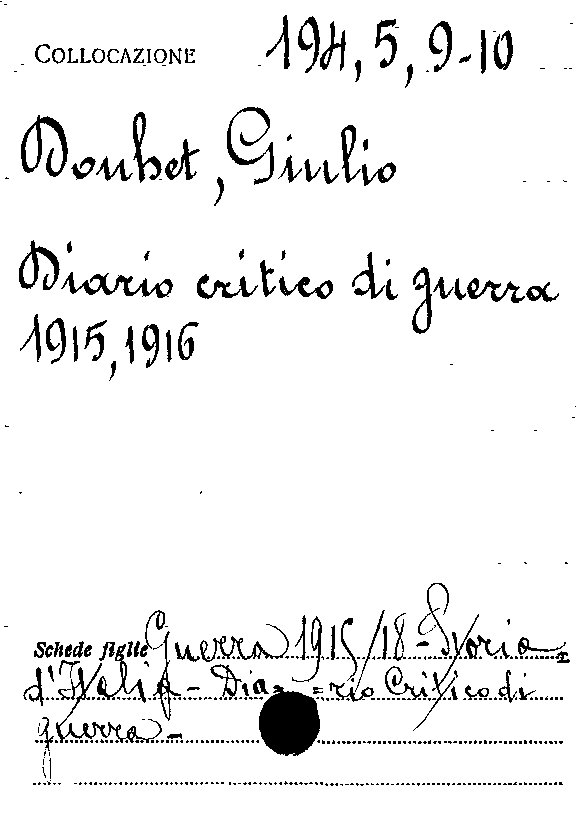 COLLOCAZIONE 194, 5, 9-10
Douhet, Giulio
Diario critico di guerra
1915, 1916
Schede figlie Guerra 1915/18 - Storia
d'Italia - Dia= =rio Critico di
guerra -